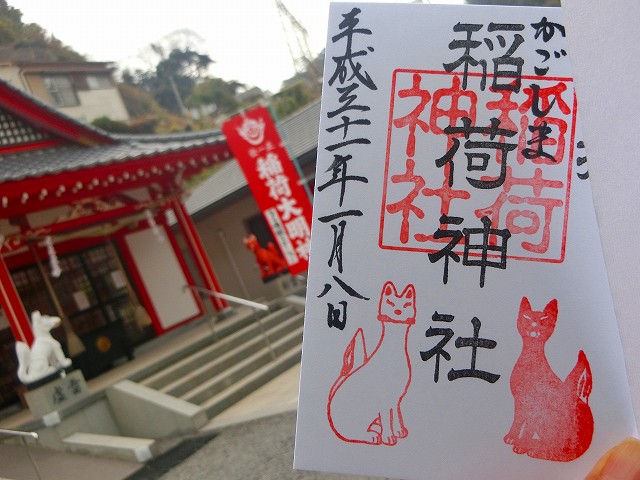 かごしま
稲荷神社
稲荷
神社
平成三十一年一月八日
稲荷大明神